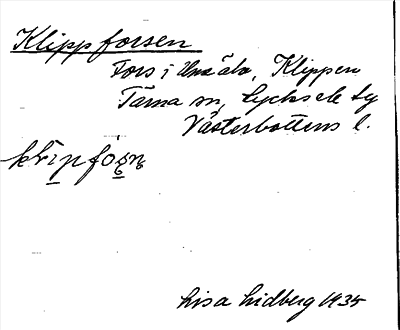 Klippforsen
Fors i Umeälv, Klippen
Tärna sn, Lycksele tg
Västerbottens l.
Lisa Lidberg 1935